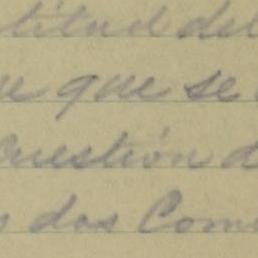 titud del
que se
cuestión d
dos Com